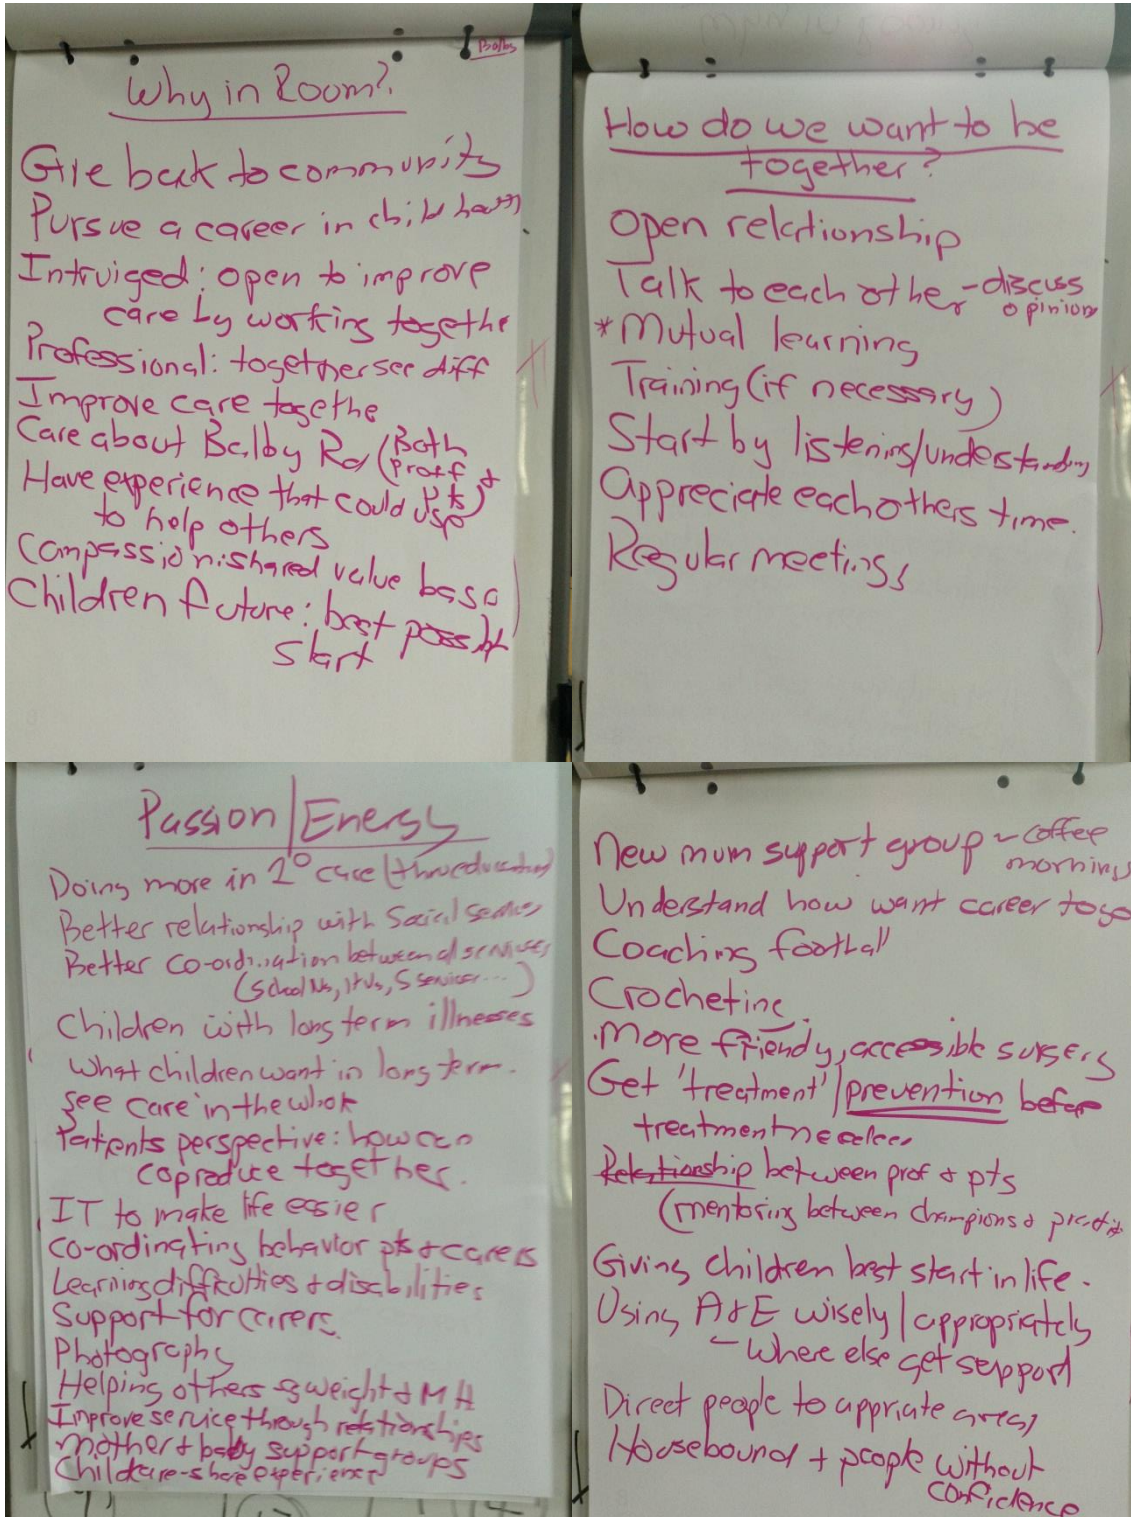 Why in Room?
Give back to community
Pursue a career in child health
Intruiged: open to improve
care by working togethe
Professional: together see diff
Improve care togethe
Care about Balby Rd (Both
proff + pts)
Have experience that could use
to help others
Compassion: shared value base
Children future: best possible
start
How do we want to be
together?
Open relationship
Talk to each other - discuss
opinions
*Mutual learning
Training (if necessary)
Start by listening/understanding
Appreciate each others time.
Regular meetings
Passion/Energy
Doing more in 2° care (thru education)
Better relationship with Social services
Better co-ordination between all services
(School Ns, HVs, S services...)
Children with long term illnesses
What children want in long term.
See care in the whole
Patients perspective: how can
coproduce together.
IT to make life easier
Co-ordinating behavior pts + carers
Learning difficulties + disabilities
Support for carers.
Photography
Helping others eg weight + MH
Improve service through relationships
Mother + baby support groups
Childcare - share experience
New mum support group ~ coffee
mornings
Understand how want career to go
Coaching football
Crocheting
.More friendly, accessible surgery
Get 'treatment' / prevention before
treatment needed
Relationship between prof + pts
(mentoring between champions +
Giving children best start in life.
Using A+E wisely/appropriately
- Where else get support
Direct people to appriate areas
Housebound + people without
confidence